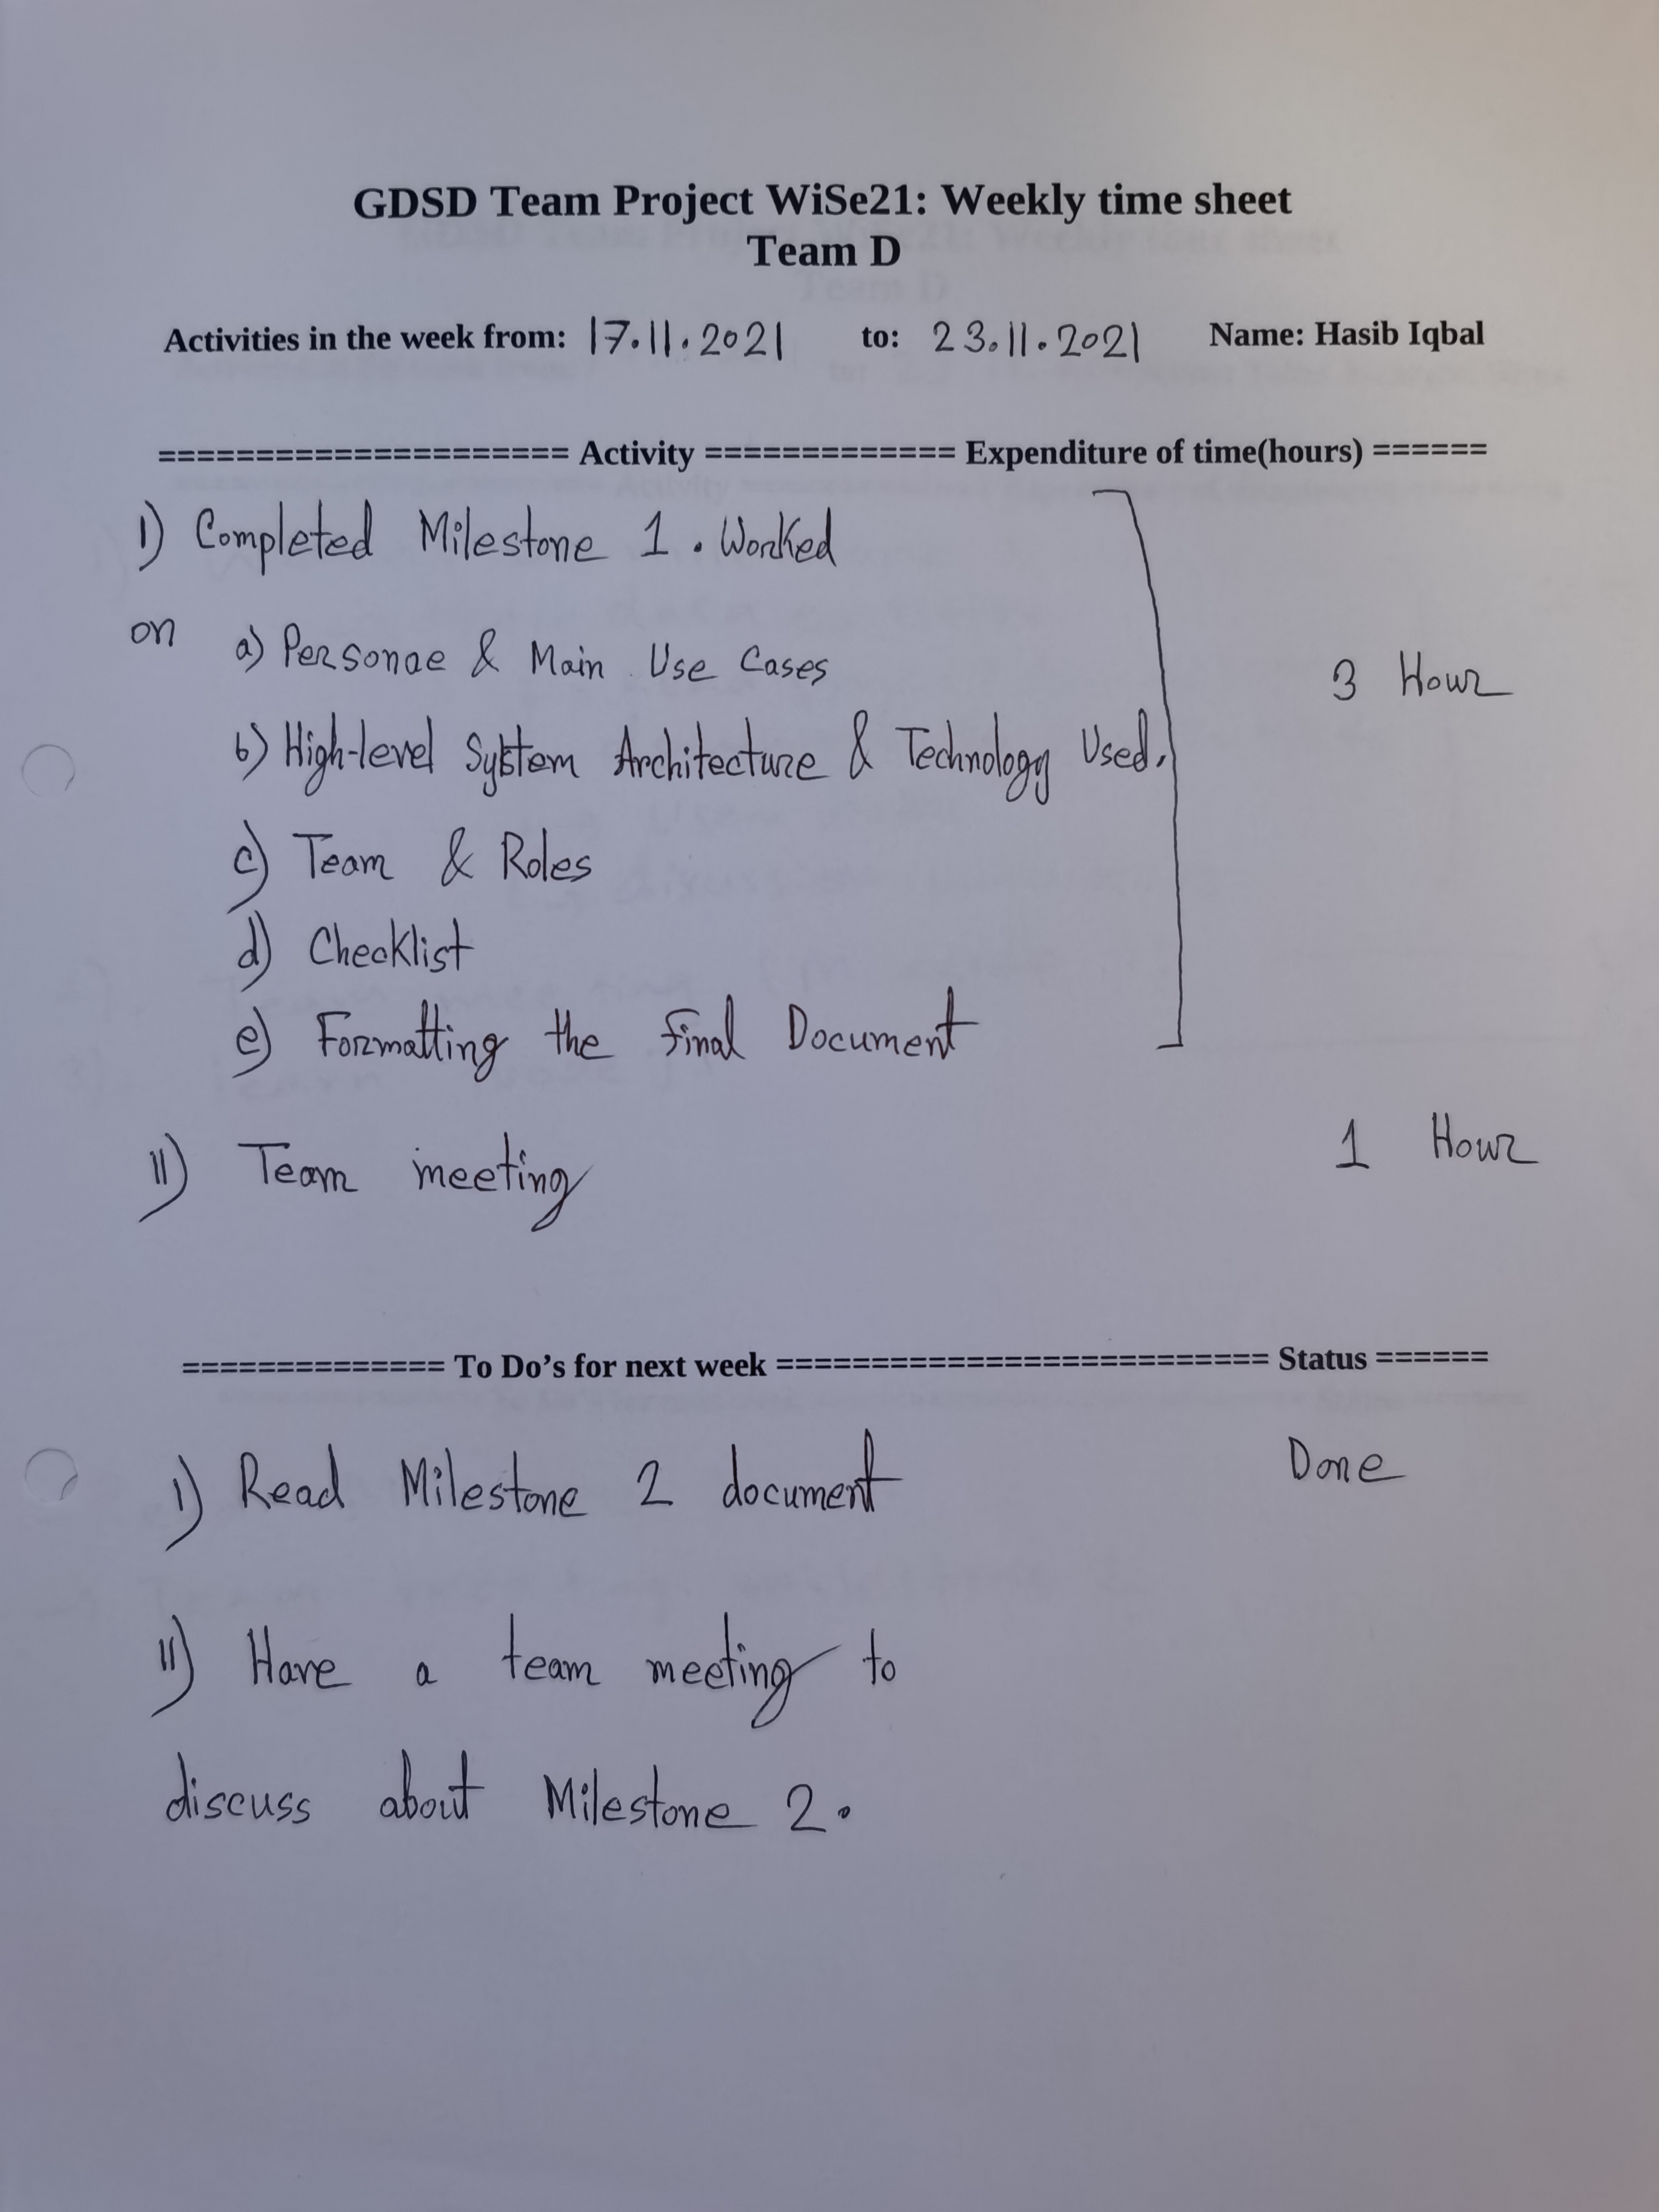 GDSD Team Project WiSe21: Weekly time sheet
Team D
Activities in the week from: 17.11.2021 to: 23.11.2021 Name: Hasib Iqbal
===================== Activity ============= Expenditure of time(hours) ======
i) Completed Milestone 1. Worked
on a) Personae & Main Use Cases 3 Hour
b) High-level System Architecture & Technology Used.
c) Team & Roles
d) Checklist
e) Formatting the final Document
ii) Team meeting 1 Hour
============== To Do’s for next week ========================== Status ======
i) Read Milestone 2 document Done
ii) Have a team meeting to
discuss about Milestone 2.